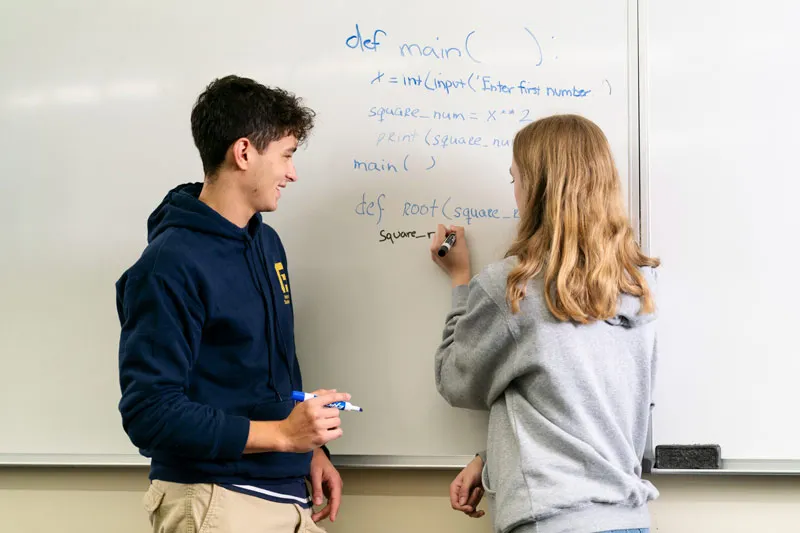 def main( ):
x = int(input('Enter first number )
square_num = x**2
print (square_nu
main( )
def Root(square_r
square_r